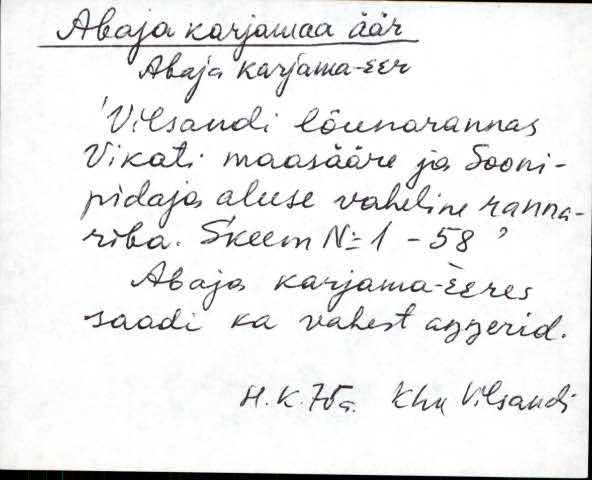 Abaja karjamaa äär
Abaja karjama-εεr
'Vilsandi lõunarannas
Vikati maasääre ja Sooni-
pidaja aluse vaheline ranna-
riba. Skeem № 1 - 58'
Abaja karjama-εεres
saadi ka vahest angerid.
H.K. 75a. Khn Vilsandi